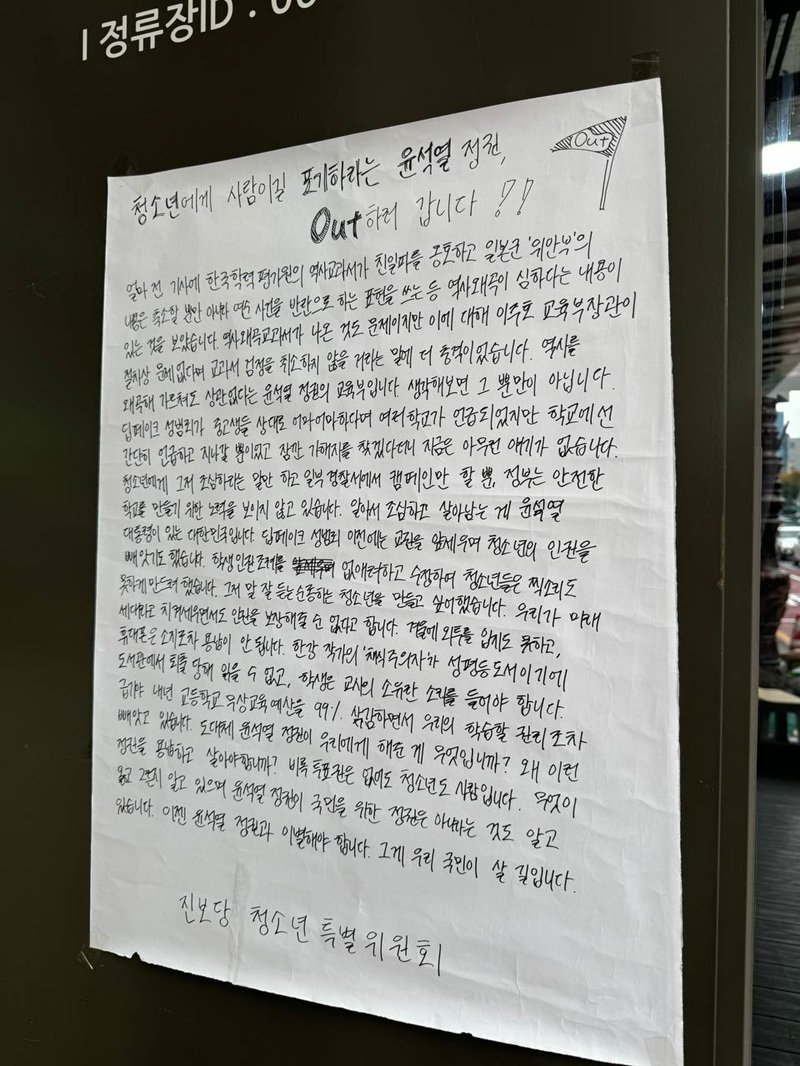 | 정류장ID : 0
Out
청소년에게 사람이길 포기하라는 윤석열 정권,
Out하러 갑니다 !!
얼마 전 기사에 한국학력평가원의 역사교과서가 친일파를 옹호하고 일본군 '위안부'의
내용은 축소할 뿐만 아니라 여순 사건을 반란으로 하는 표현을 쓰는 등 역사왜곡이 심하다는 내용이
있는 것을 보았습니다. 역사왜곡교과서가 나온 것도 문제이지만 이에 대해 이주호 교육부장관이
절차상 문제 없다며 교과서 검정을 취소하지 않을 거라는 말에 더 충격이었습니다. 역사를
왜곡해 가르쳐도 상관없다는 윤석열 정권의 교육부입니다. 생각해보면 그 뿐만이 아닙니다.
딥페이크 성범죄가 중고생들 상대로 어마어마하다며 여러학교가 언급되었지만 학교에선
간단히 언급하고 지나갈 뿐이었고 잠깐 가해자를 찾겠다더니 지금은 아무런 얘기가 없습니다.
청소년에게 그저 조심하라는 말만 하고 일부 경찰서에서 캠페인만 할 뿐, 정부는 안전한
학교를 만들기 위한 노력을 보이지 않고 있습니다. 알아서 조심하고 살아남는 게 윤석열
대통령이 있는 대한민국입니다. 딥페이크 성범죄 이전에는 교권을 앞세우며 청소년의 인권을
빼앗기도 했습니다. 학생인권조례를 없애려하고 수정하여 청소년들은 찍소리도
못하게 만드려 했습니다. 그저 말 잘 듣는 순종하는 청소년을 만들고 싶어했습니다. 우리가 미래
세대라고 치켜세우면서도 인권을 보장해줄 수 없다고 합니다. 겨울에 외투를 입지도 못하고,
휴대폰은 소지조차 용납이 안 됩니다. 한강 작가의 '채식주의자'가 성평등도서이기에
도서관에서 퇴출 당해 읽을 수 없고, 학생은 교사의 소유란 소리를 들어야 합니다.
급기야 내년 고등학교 무상교육예산을 99% 삭감하면서 우리의 학습할 권리조차
빼앗고 있습니다. 도대체 윤석열 정권이 우리에게 해준 게 무엇입니까? 왜 이런
정권을 용납하고 살아야합니까? 비록 투표권은 없어도 청소년도 사람입니다. 무엇이
옳고 그른지 알고 있으며 윤석열 정권이 국민을 위한 정권은 아니라는 것도 알고
있습니다. 이젠 윤석열 정권과 이별해야 합니다. 그게 우리 국민이 살 길입니다.
진보당 청소년특별위원회